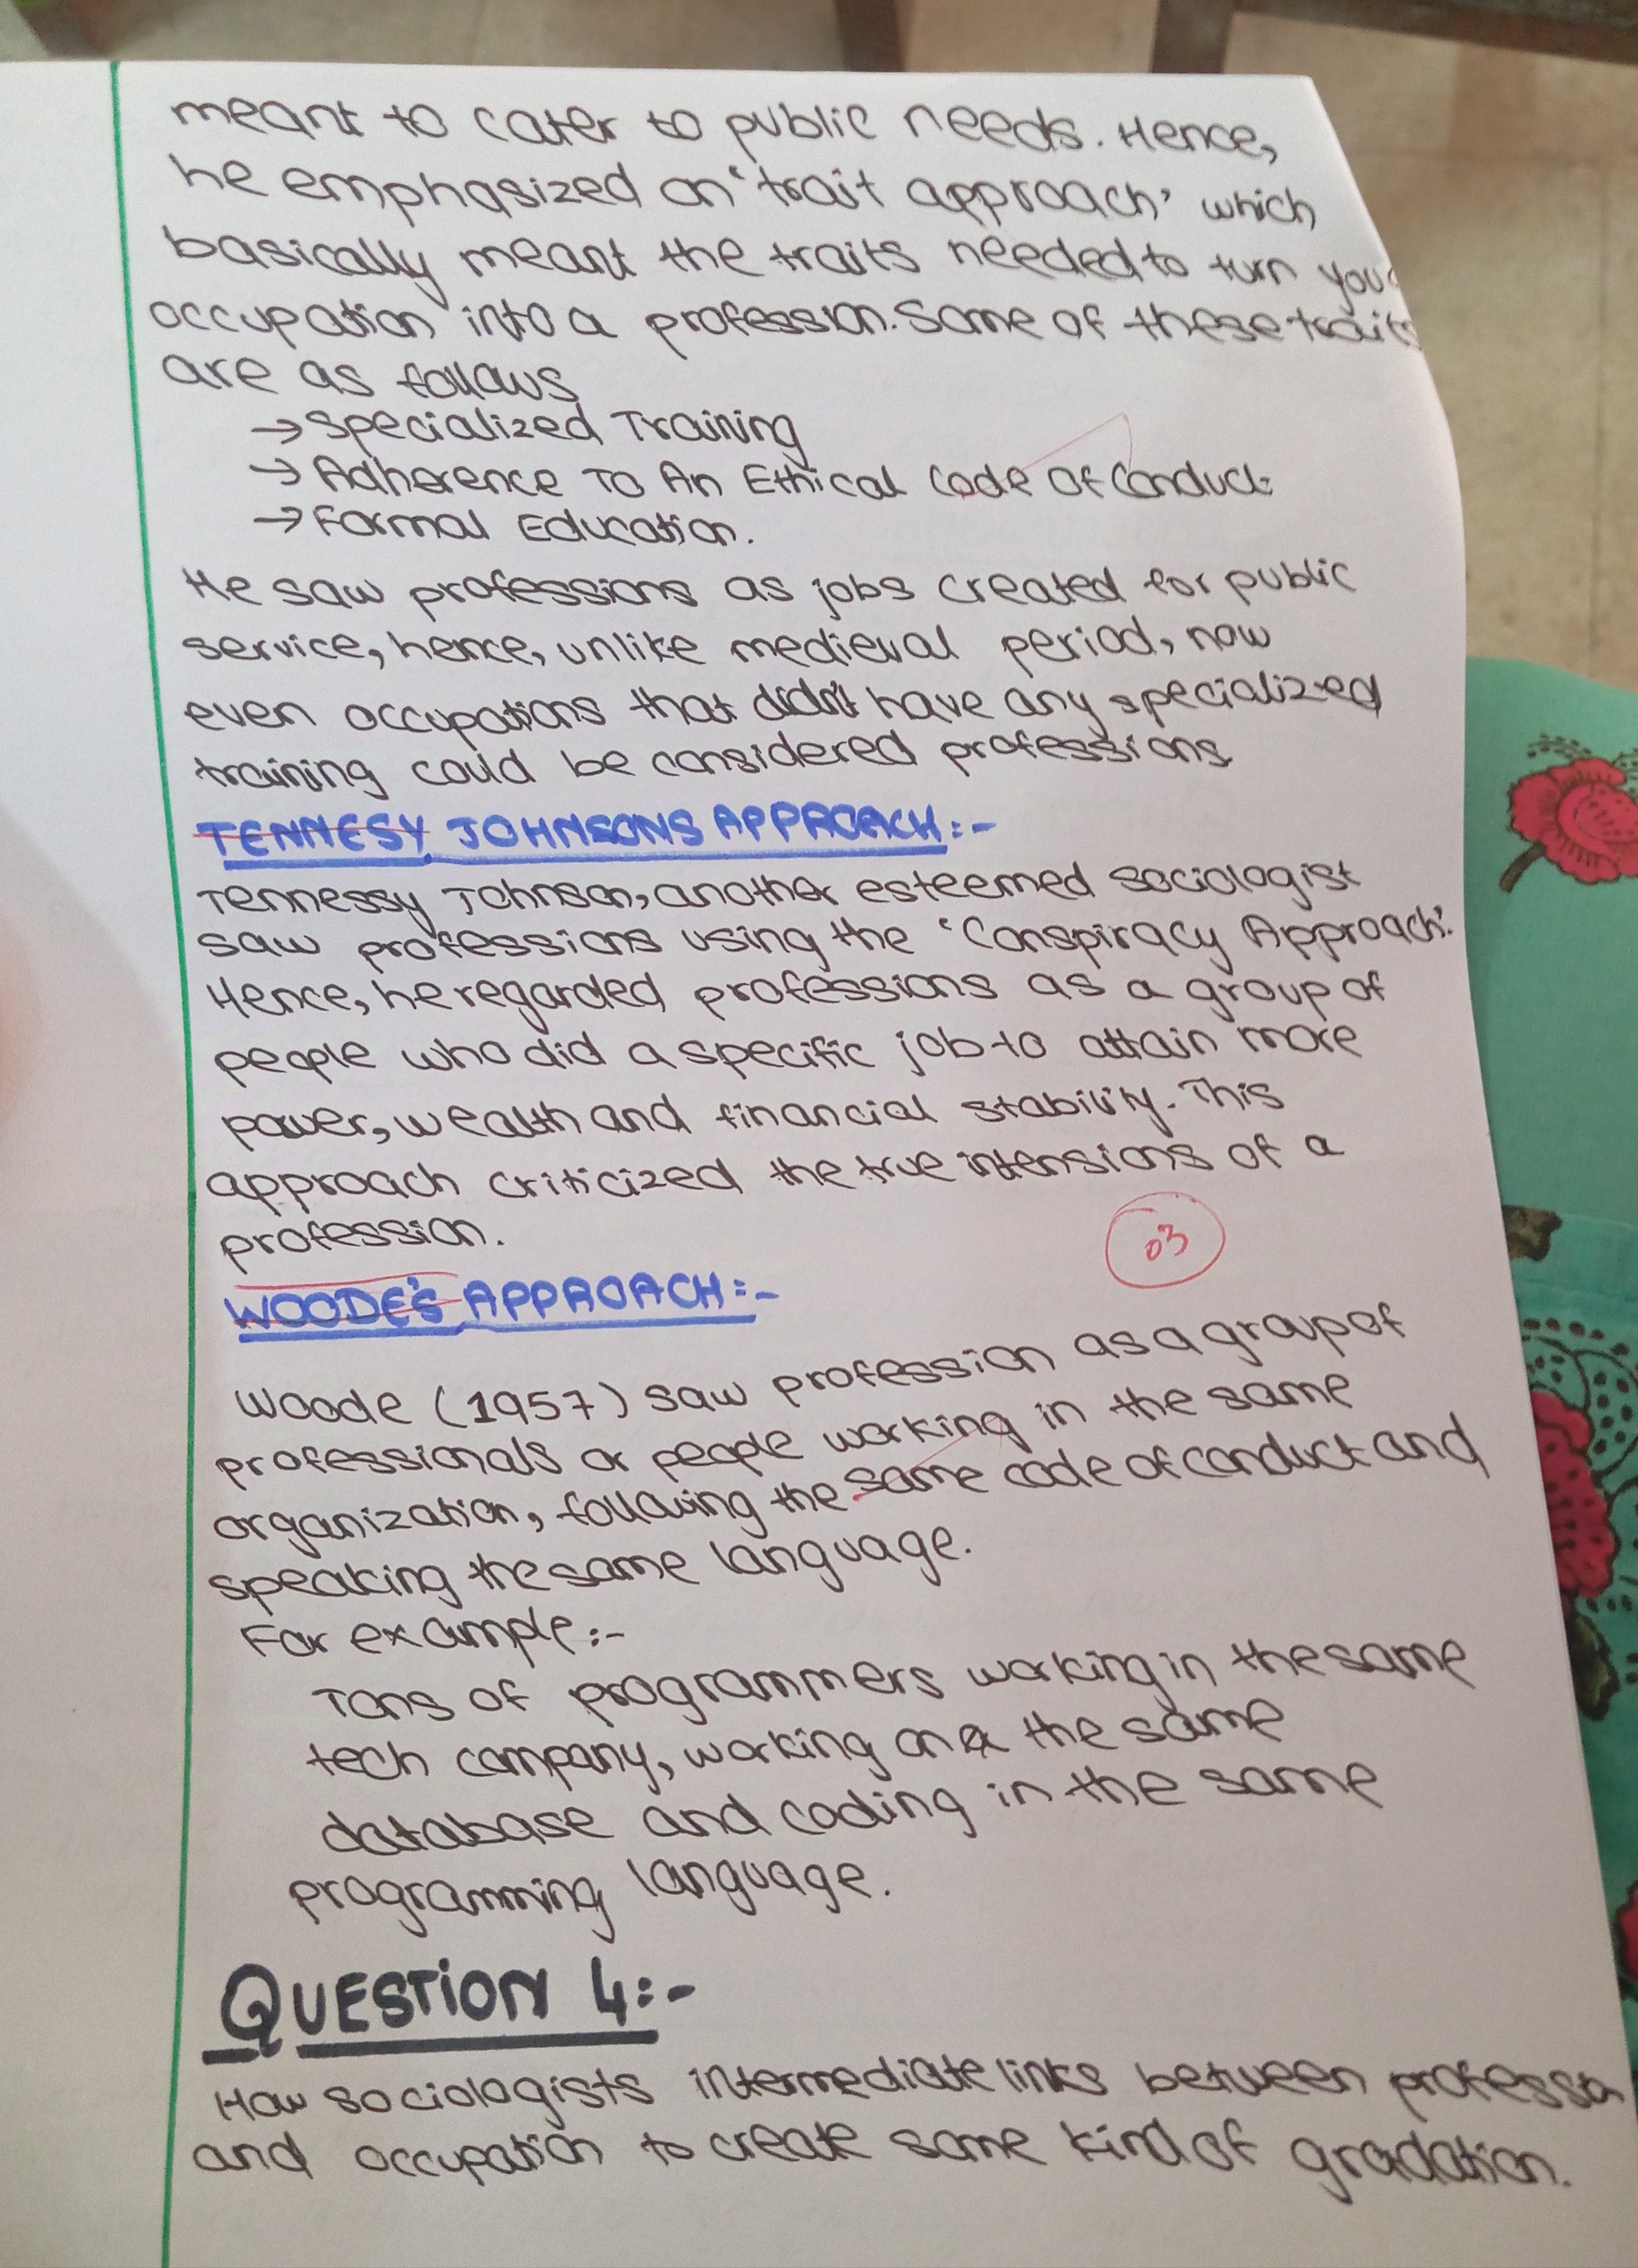 meant to cater to public needs. Hence,
he emphasized on 'trait approach' which
basically meant the traits needed to turn your
occupation into a profession. Some of these traits
are as follows
→ Specialized Training
→ Adherence To An Ethical Code Of Conduct
→ Formal Education.
He saw professions as jobs created for public
service, hence, unlike medieval period, now
even occupations that didn't have any specialized
training could be considered professions
TENNESY JOHNSONS APPROACH:-
Tennessy Johnson, another esteemed sociologist
saw professions using the 'Conspiracy Approach'.
Hence, he regarded professions as a group of
people who did a specific job to attain more
power, wealth and financial stability. This
approach criticized the true intensions of a
profession.
03
WOODE'S APPROACH:-
Woode (1957) saw profession as a group of
professionals or people working in the same
organization, following the same code of conduct and
speaking the same language.
For example:-
Tons of programmers working in the same
tech company, working on the same
database and coding in the same
programming language.
QUESTION 4:-
How sociologists intermediate links between profession
and occupation to create some kind of gradation.